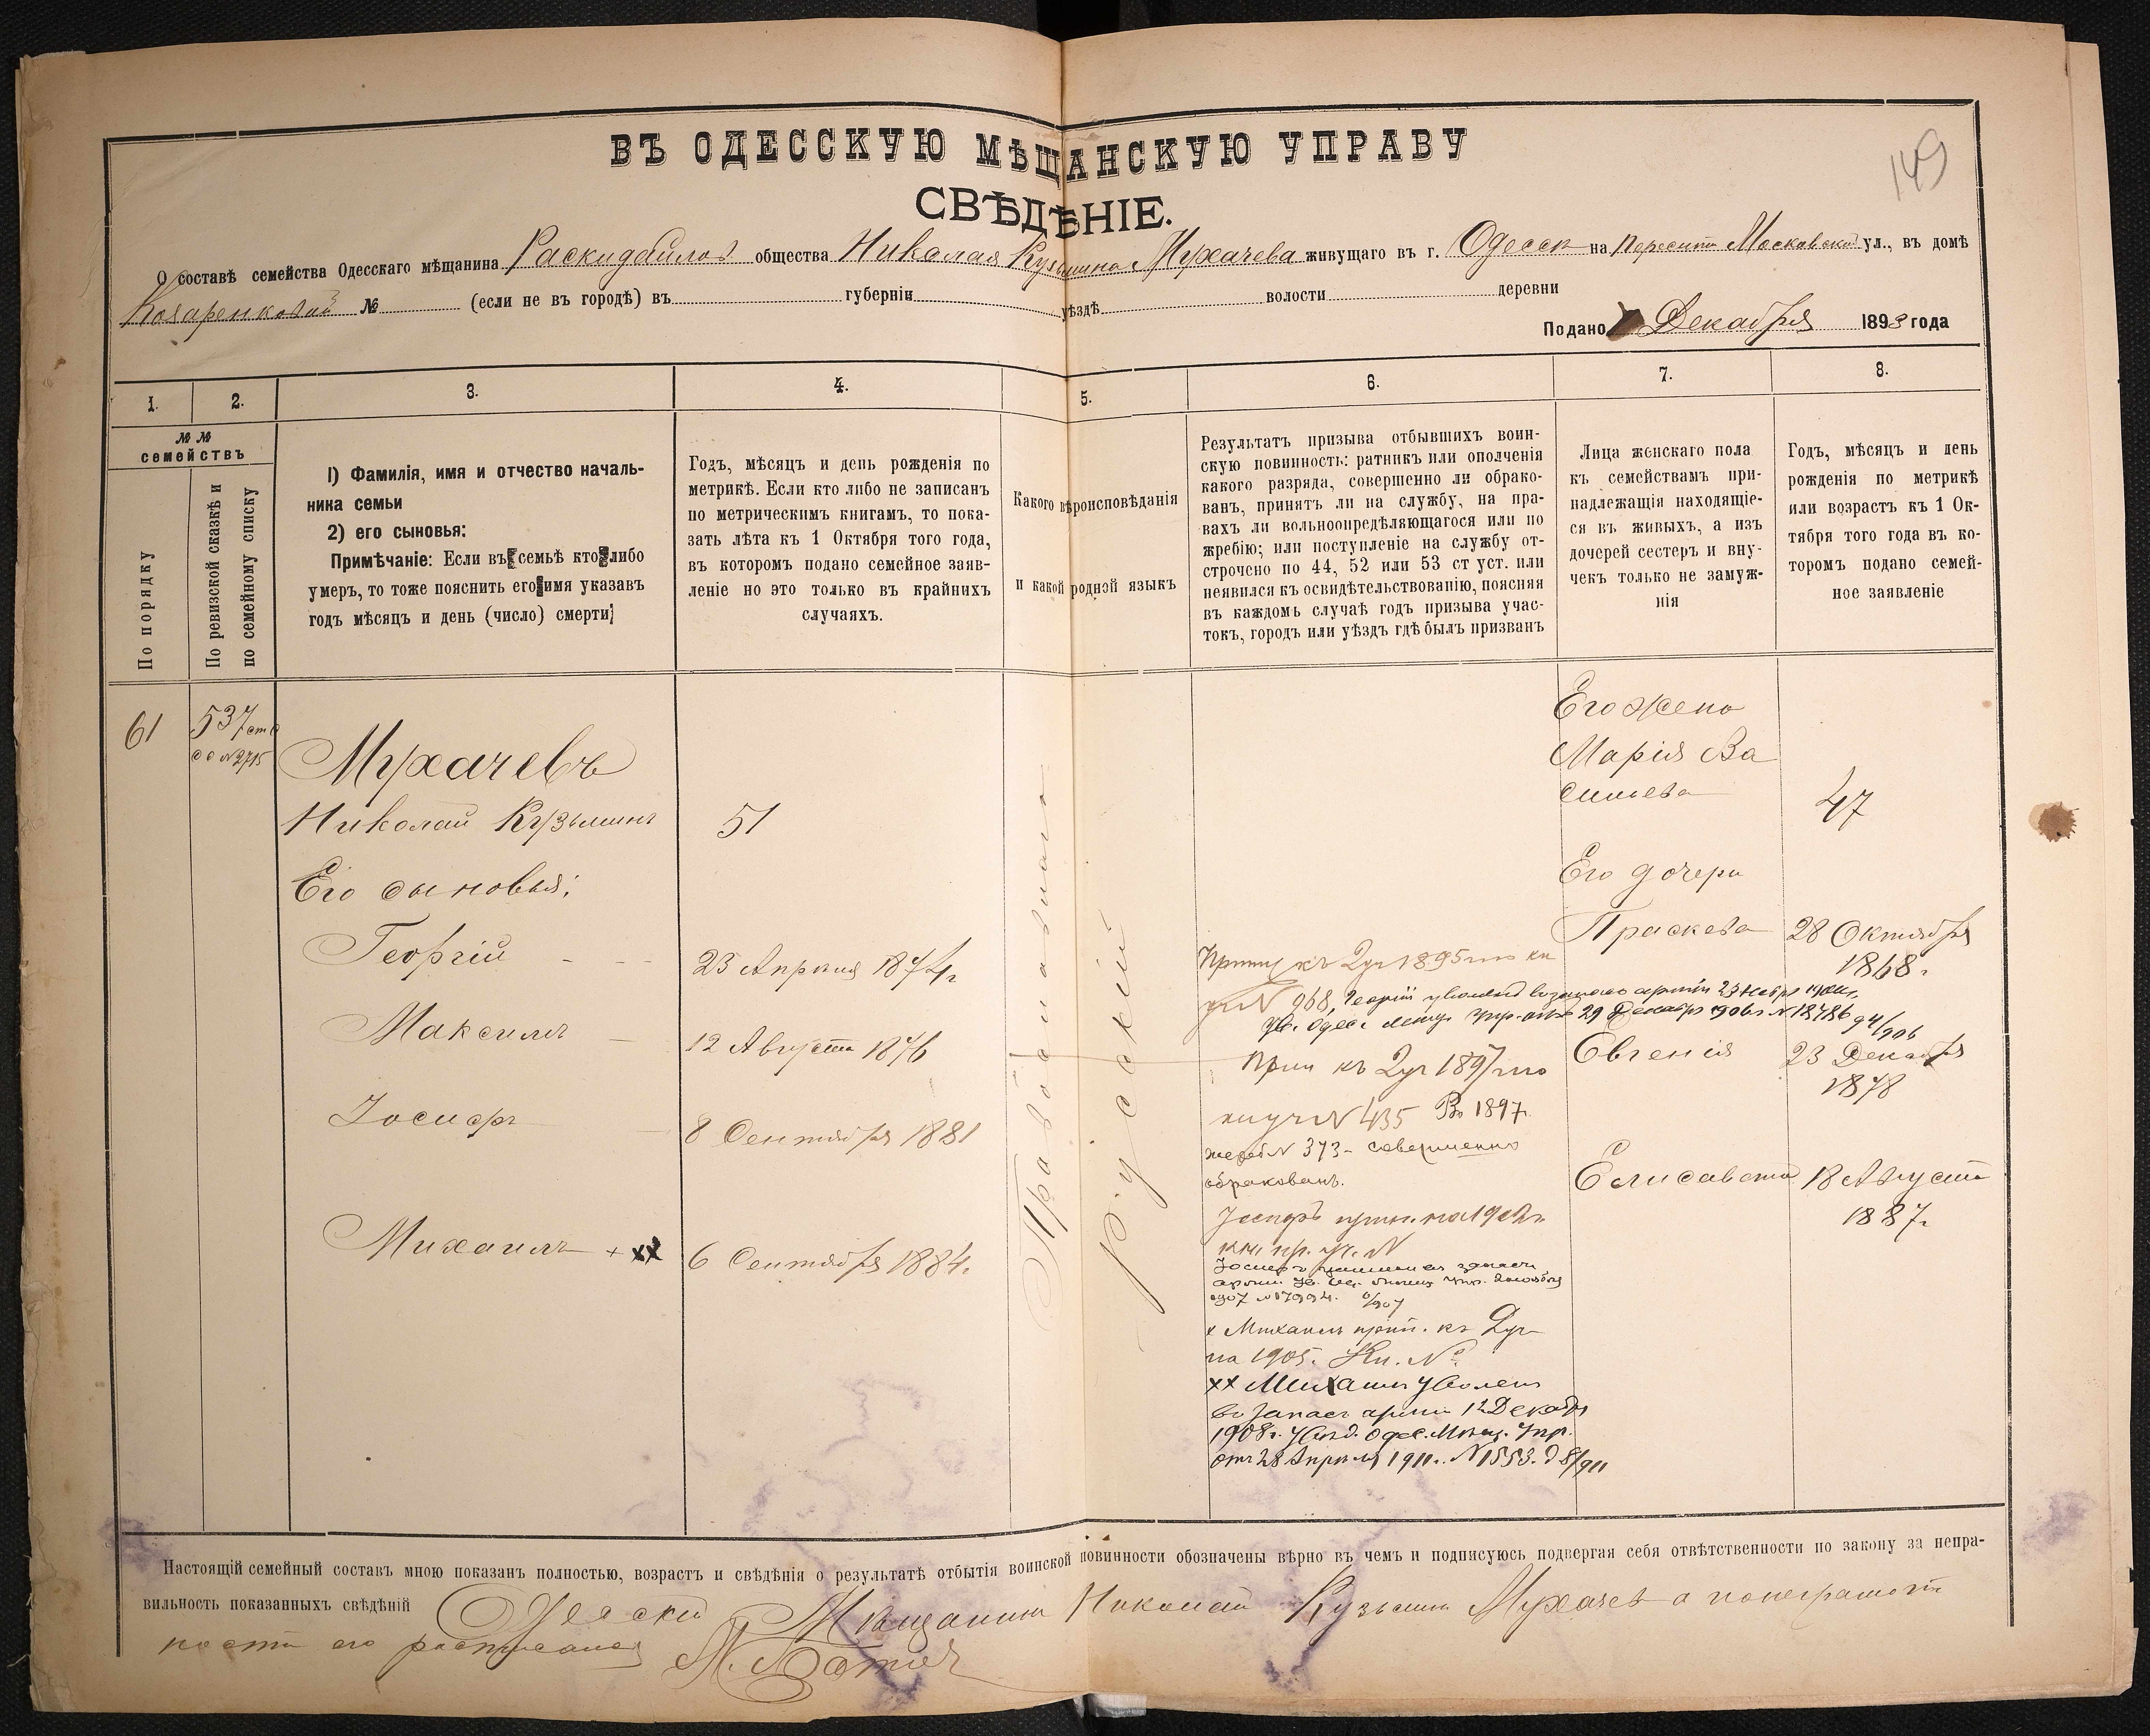 149
ВЪ ОДЕССКУЮ МѢЩАНСКУЮ УПРАВУ
СВѢДѢНІЕ.
О составѣ семейства Одесскаго мѣщанина Раскидайлов общества Николая Кузьмина Мухачева живущаго въ г. Одессѣ на Пересыпи Московской ул., въ домѣ
№ (если не въ городѣ) въ губерніи уѣздѣ волости деревни
Подано Декабря 1893 года
1. 2. 3. 4. 5. 6. 7. 8.
№ № семействъ
По порядку
По ревизской сказкѣ и
по семейному списку
1) Фамилія, имя и отчество началь-
ника семьи
2) его сыновья:
Примѣчаніе: Если въ семьѣ кто либо
умеръ, то тоже пояснить его имя указавъ
годъ мѣсяцъ и день (число) смерти
Годъ, мѣсяцъ и день рожденія по
метрикѣ. Если кто либо не записанъ
по метрическимъ книгамъ, то пока-
зать лѣта къ 1 Октября того года,
въ которомъ подано семейное заяв-
леніе но это только въ крайнихъ
случаяхъ.
Какого вѣроисповѣданія
и какой родной языкъ
Результатъ призыва отбывшихъ воин-
скую повинность: ратникъ или ополченія
какого разряда, совершенно ли обрако-
ванъ, принятъ ли на службу, на пра-
вахъ ли вольноопредѣляющагося или по
жребію; или поступленіе на службу от-
строчено по 44, 52 или 53 ст уст. или
неявился къ освидѣтельствованію, поясняя
въ каждомъ случаѣ годъ призыва учас-
токъ, городъ или уѣздъ гдѣ былъ призванъ
Лица женскаго пола
къ семействамъ при-
надлежащія находящіе-
ся въ живыхъ, а изъ
дочерей сестеръ и вну-
чекъ только не замуж-
нія
Годъ, мѣсяцъ и день
рожденія по метрикѣ
или возрастъ къ 1 Ок-
тября того года въ ко-
торомъ подано семей-
ное заявленіе
61
537 ст
сс №2715
Мухачевъ
Николай Кузьминъ
51
Его сыновья:
Георгій
23 Апрѣля 1874 г
Максимъ
12 Августа 1876
Іосифъ
8 Сентября 1881
Михаилъ + хх
6 Сентября 1884 г.
Православнаго
Русскій
Прип къ 2 уч 1895
№ 968, Георгій уволенъ въ запасъ арміи
29 Декабря 1906 г № 18786 94/906
Прип къ 2 уч 1897
уч № 435 Въ 1897 г.
жереб № 373 - совершенно
обракованъ.
Іосифъ прип. на 1902 г
кн. пр. уч. №
1907 № 17994.
х Михаилъ прип. къ 2 уч
на 1905. Кн. №
хх Михаилъ уволенъ
въ запасъ арміи 12 Декабр
1908 г. Увѣд. Одес. Мѣщ. Упр.
отъ 28 Апрѣля 1911 г. № 1553. д 8/911
Его жена
Марія Ва
сильева
47
Его дочери
Праскева
28 Октября
1868 г.
Евгенія
23 Декабря
1878
Елисавета
18 Августа
1887 г.
Настоящій семейный составъ мною показанъ полностью, возрастъ и свѣдѣнія о результатѣ отбытія воинской повинности обозначены вѣрно въ чемъ и подписуюсь подвергая себя отвѣтственности по закону за непра-
вильность показанныхъ свѣдѣній Одескій Мѣщанинъ Николай Кузьмин Мухачев а понеграмот
ности его росписался